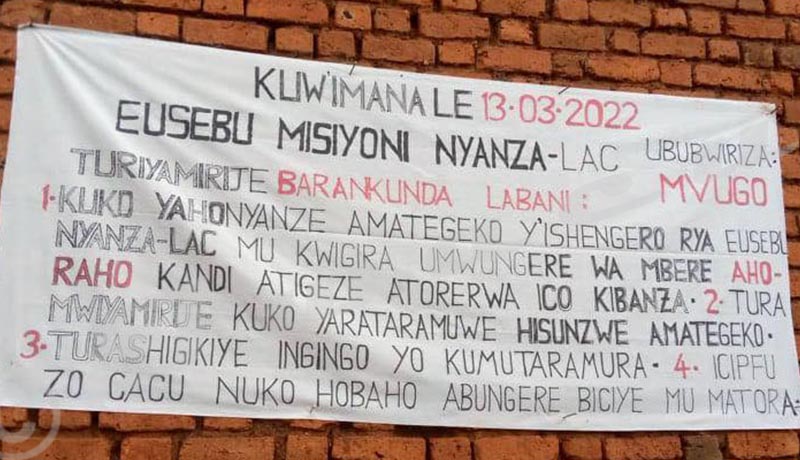 KUW'IMANA LE 13.03.2022
EUSEBU MISIYONI NYANZA-LAC UBUBWIRIZA:
TURIYAMIRIJE BARANKUNDA LABANI: MVUGO
1-KUKO YAHONYANZE AMATEGEKO Y'ISHENGERO RYA EUSEBU
NYANZA-LAC MU KWIGIRA UMWUNGERE WA MBERE AHO-
RAHO KANDI ATIGEZE ATORERWA ICO KIBANZA. 2-TURA
MWIYAMIRIJE KUKO YARATARAMUWE HISUNZWE AMATEGEKO.
3-TURASHIGIKIYE INGINGO YO KUMUTARAMURA. 4. ICIPFU
ZO CACU NUKO HOBAHO ABUNGERE BICIYE MU MATORA-